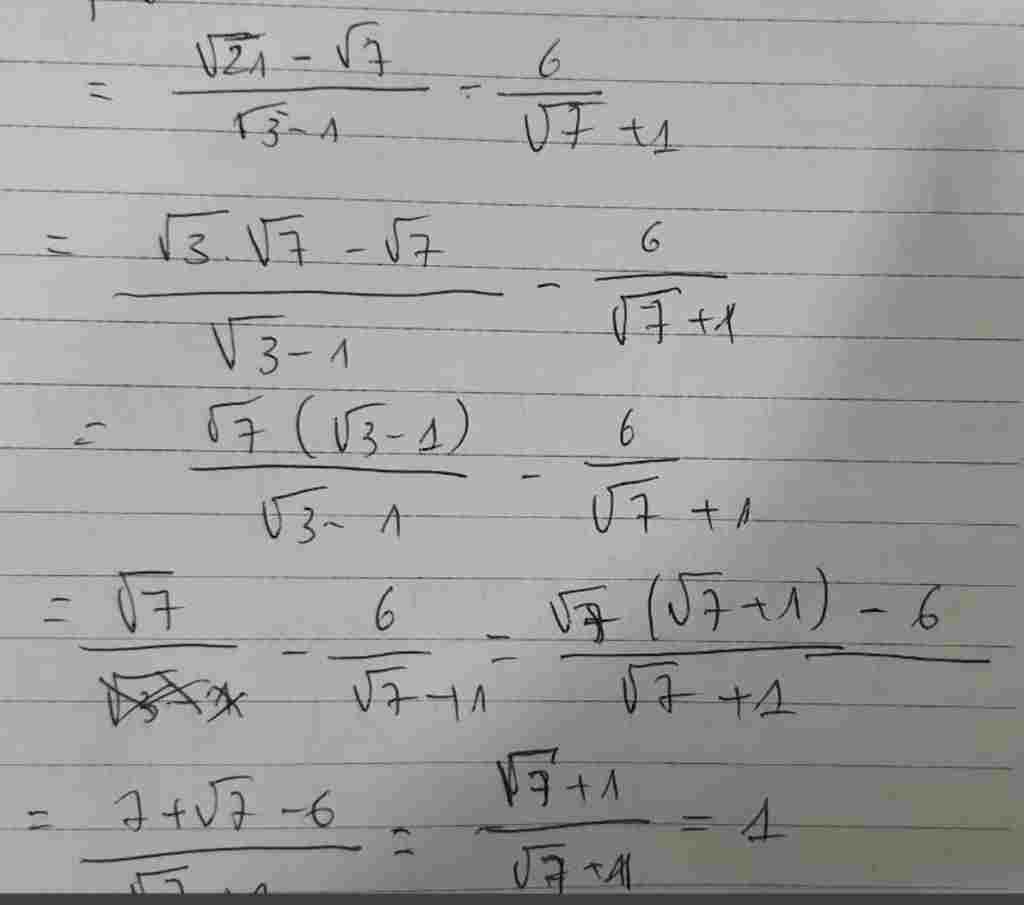 = (√21 - √7)/(√3 - 1) - 6/(√7 + 1)
= (√3 . √7 - √7)/(√3 - 1) - 6/(√7 + 1)
= √7 (√3 - 1)/(√3 - 1) - 6/(√7 + 1)
= √7 - 6/(√7 + 1) = (√7 (√7 + 1) - 6)/(√7 + 1)
= (7 + √7 - 6)/(√7 + 1) = (√7 + 1)/(√7 + 1) = 1